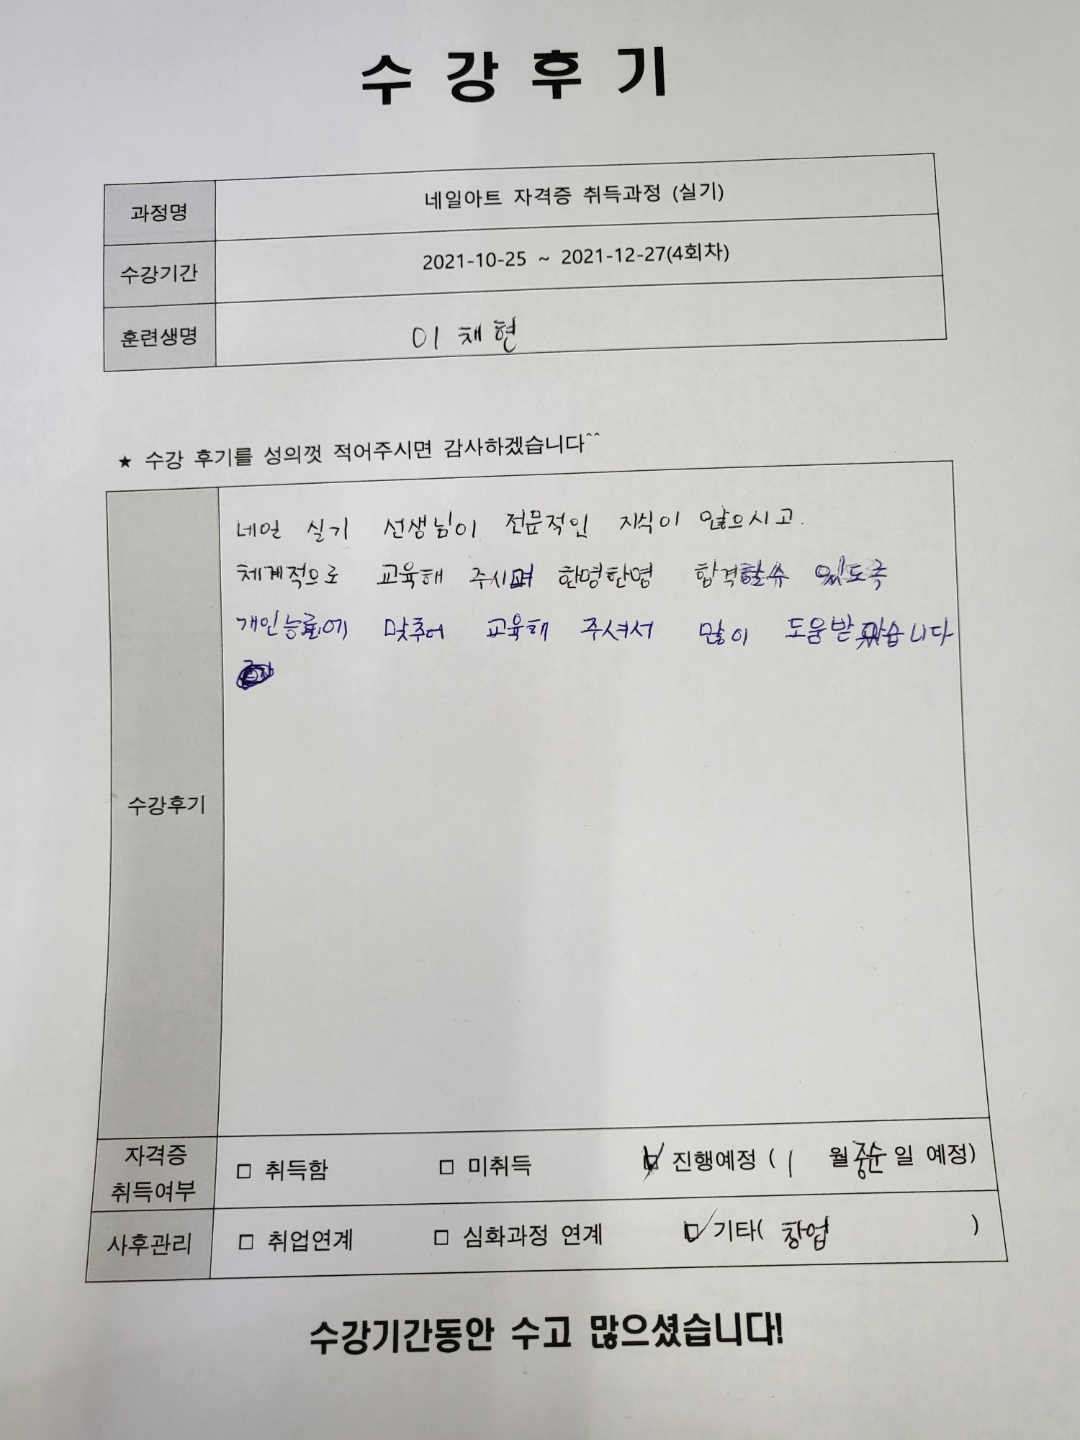 수 강 후 기
과정명 네일아트 자격증 취득과정 (실기)
수강기간 2021-10-25 ~ 2021-12-27(4회차)
훈련생명 이 채 현
★ 수강 후기를 성의껏 적어주시면 감사하겠습니다^^
네일 실기 선생님이 전문적인 지식이 많으시고.
체계적으로 교육해 주시며 한명한명 합격할수 있도록
개인능률에 맞추어 교육해 주셔서 많이 도움받았습니다
수강후기
자격증
취득여부
□ 취득함 □ 미취득 ☑ 진행예정 ( 1 월중순일 예정)
사후관리 □ 취업연계 □ 심화과정 연계 ☑ 기타( 창업 )
수강기간동안 수고 많으셨습니다!